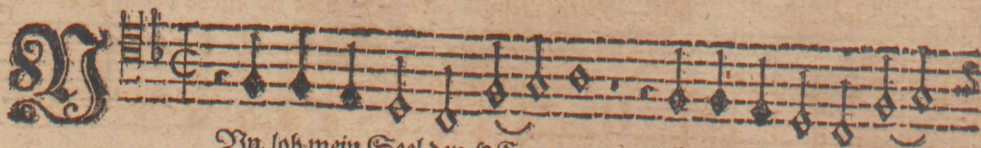 N
Vn lob mein Seel den